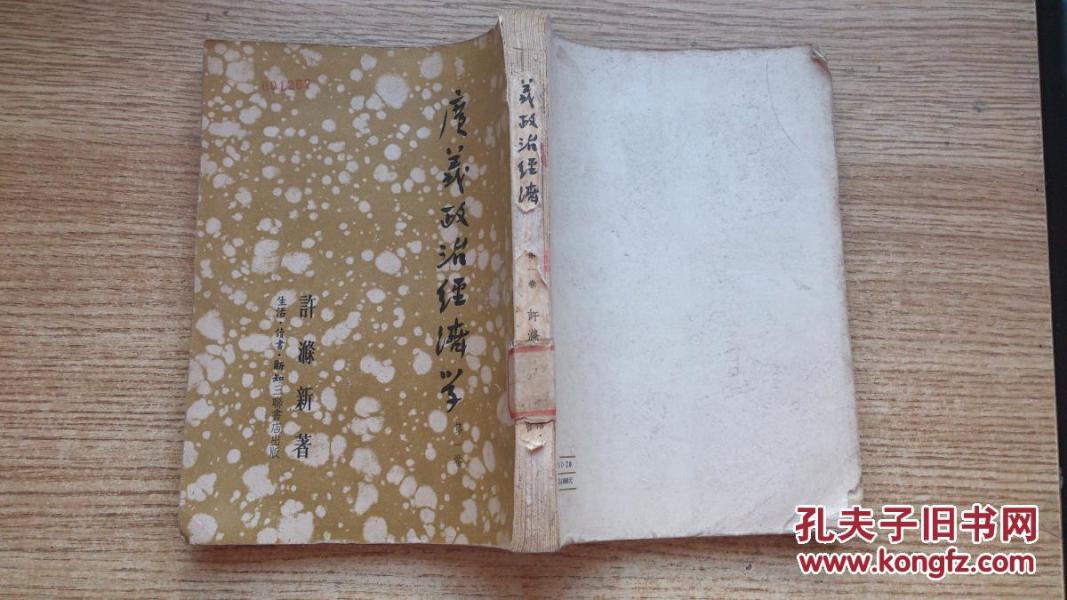 001207
廣義政治經濟学
第一卷
許滌新著
生活·讀書·新知三聯書店出版
義政治經濟
卷
許滌
孔夫子旧书网
www.kongfz.com